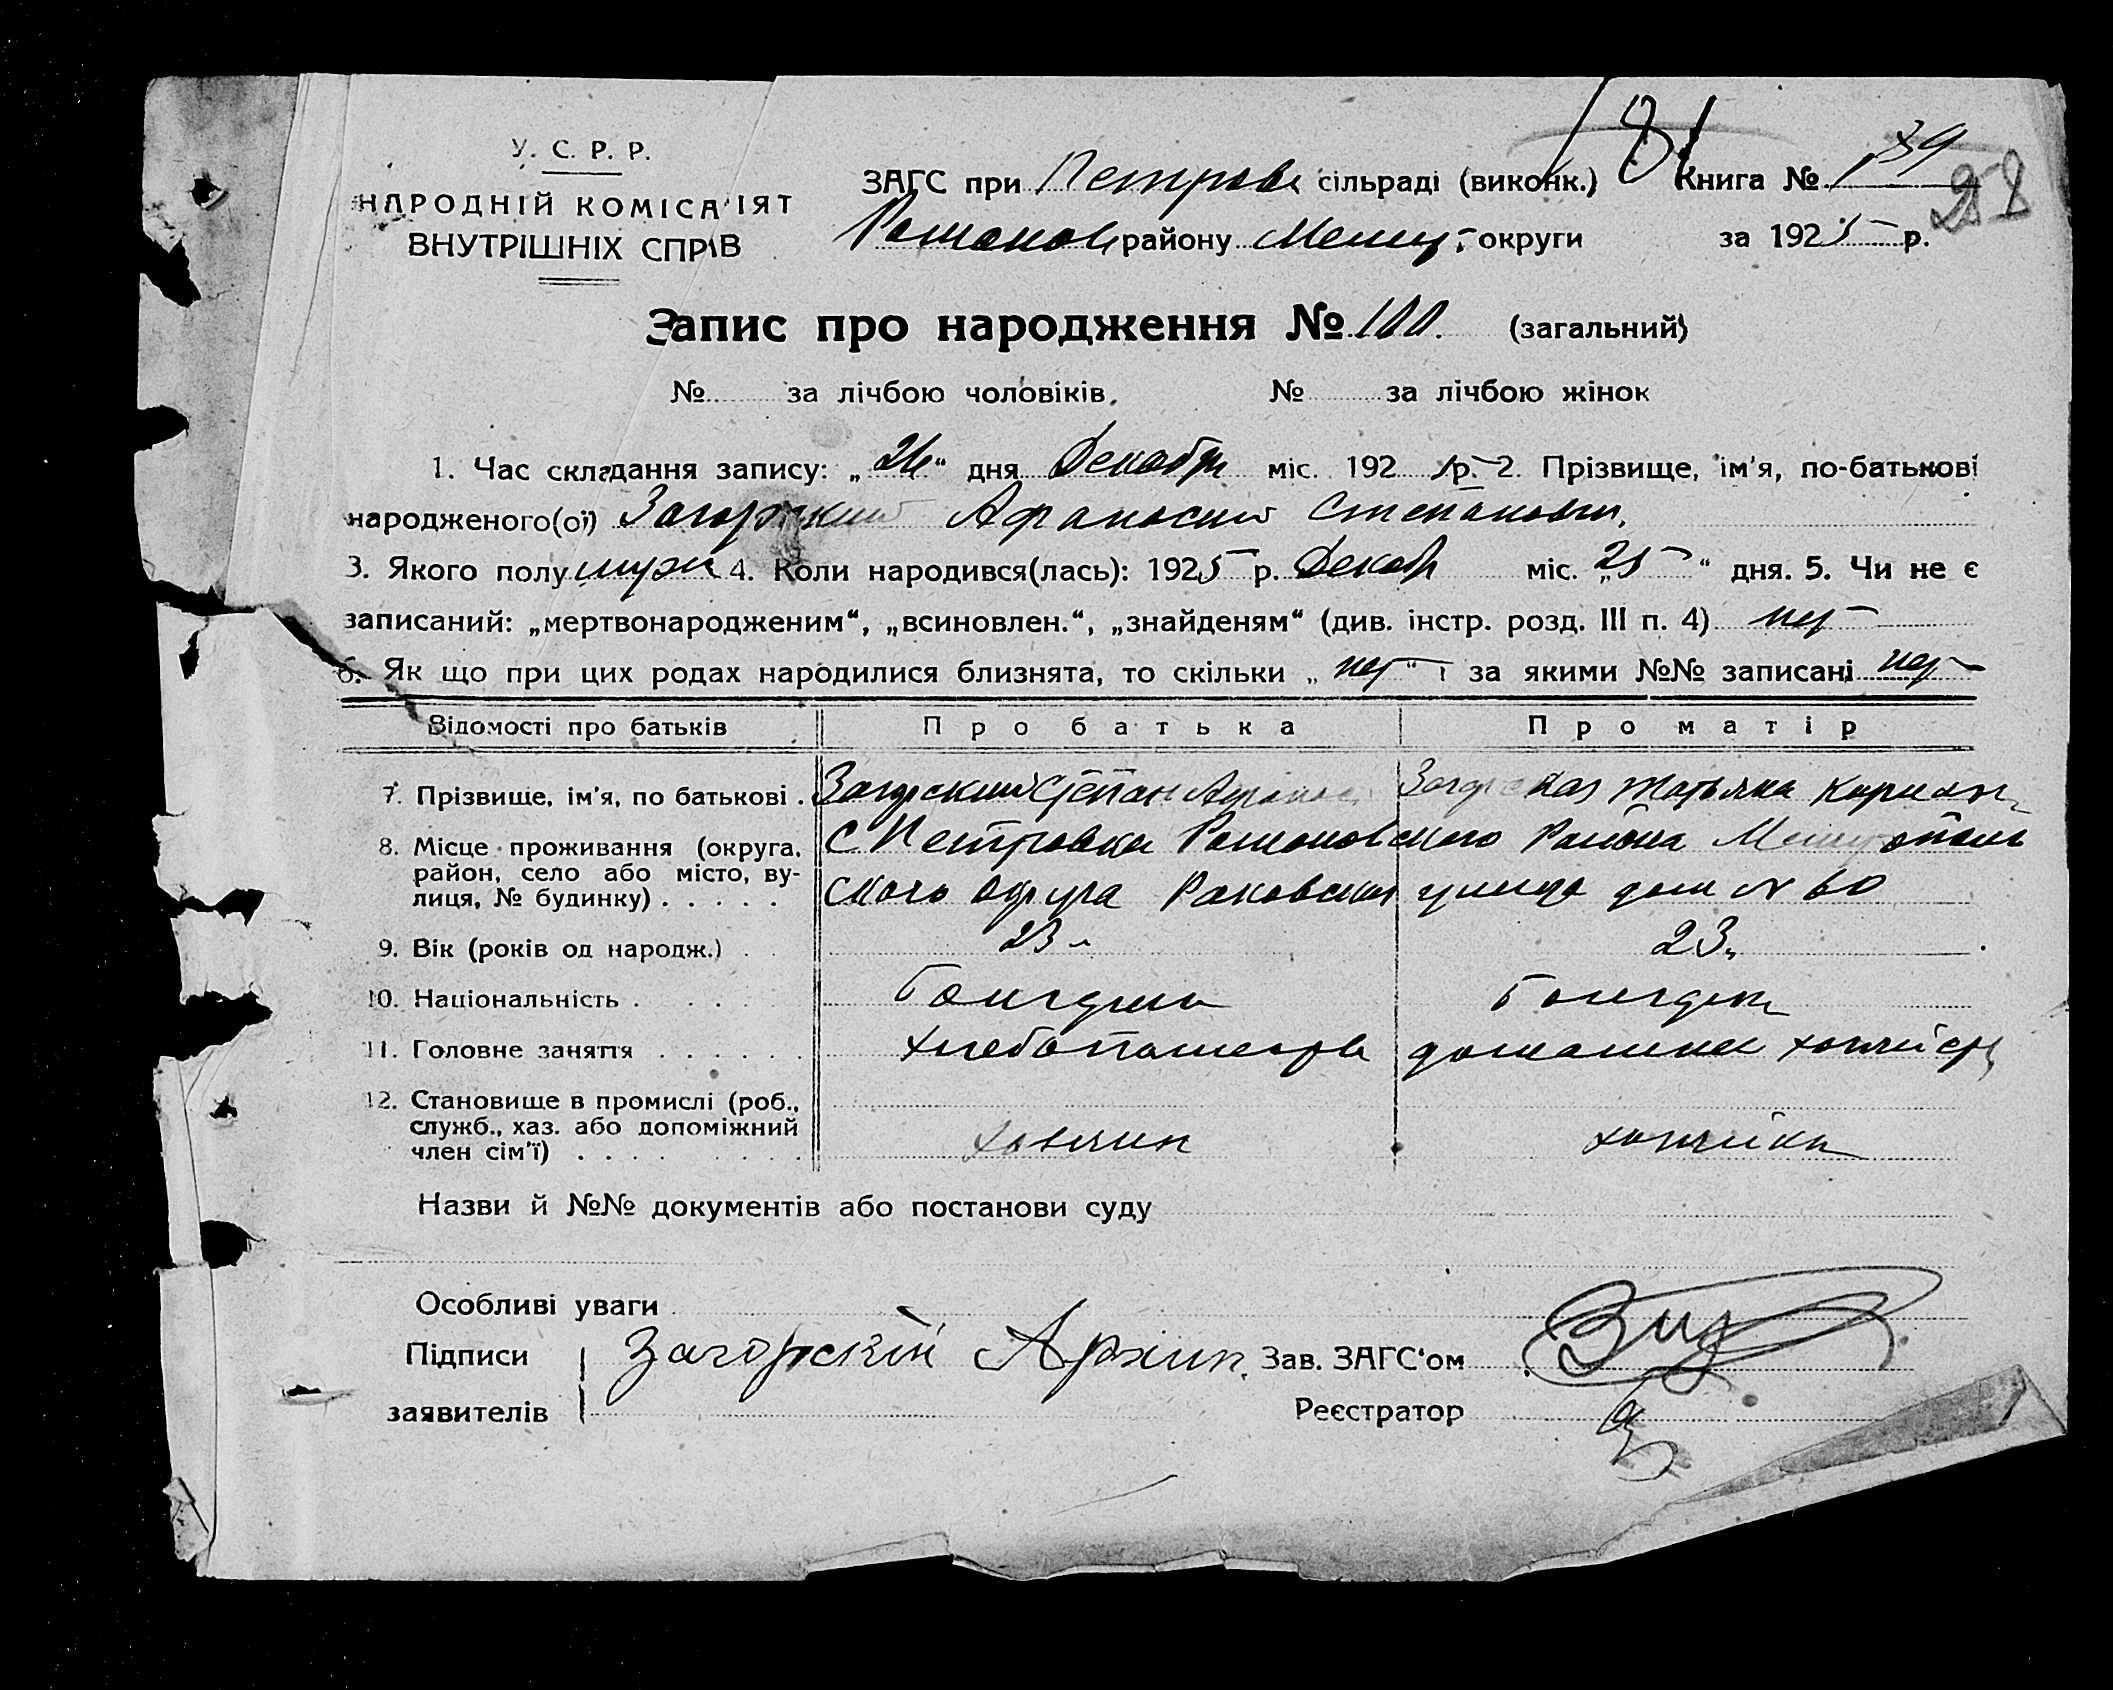 181
У. С. Р. Р.
НАРОДНІЙ КОМІСАРІЯТ
ВНУТРІШНІХ СПРАВ
ЗАГС при Петровск сільраді (виконк.) Книга № 139
258
Романов району Мелит. округи за 1925 р.
Запис про народження № 100. (загальний)
№ за лічбою чоловіків. № за лічбою жінок
1. Час складання запису: „26“ дня Декабря міс. 192 р. 2. Прізвище, ім'я, по-батькові
народженого(ої) Загорский Афанасий Степанович.
3. Якого полу муж 4. Коли народився(лась): 1925 р. Декаб міс. „25“ дня. 5. Чи не є
записаний: „мертвонародженим“, „всиновлен.“, „знайденям“ (див. інстр. розд. III п. 4) нет
6. Як що при цих родах народилися близнята, то скільки „нет“ і за якими №№ записані нет
Відомості про батьків Про батька Про матір
7. Прізвище, ім'я, по батькові . Загорский Степан Афанас Загорская Татьяна
8. Місце проживання (округа, район, село або місто, вулиця, № будинку) . . . . . с Петровка Романовского Района Мелитополь
ского округа Раковская улица дом № 60
9. Вік (років од народж.) . . 23 23.
10. Національність . . . . Болгарин Болгарк
11. Головне заняття . . . . . . хлебопашество домашнее хозяйств
12. Становище в промислі (роб., служб., хаз. або допоміжний член сім'ї) . . . . . . . . хозяин хозяйка
Назви й №№ документів або постанови суду
Особливі уваги
Підписи заявителів Загорскій Архип. Зав. ЗАГС'ом
Реєстратор